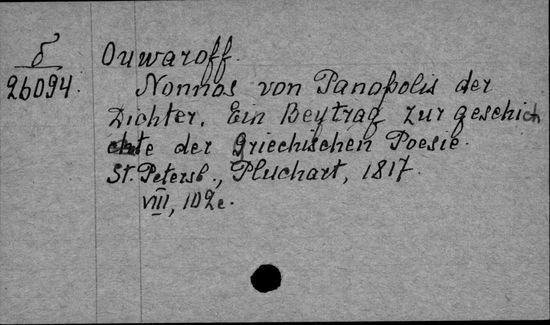 δ
26094.
Ouwaroff.
Nonnos von Panopolis der
Dichter. Ein Beytrag zur geschich
te der Griechischen Poesie.
St. Petersb., Pluchart, 1817.
VIII, 102 c.